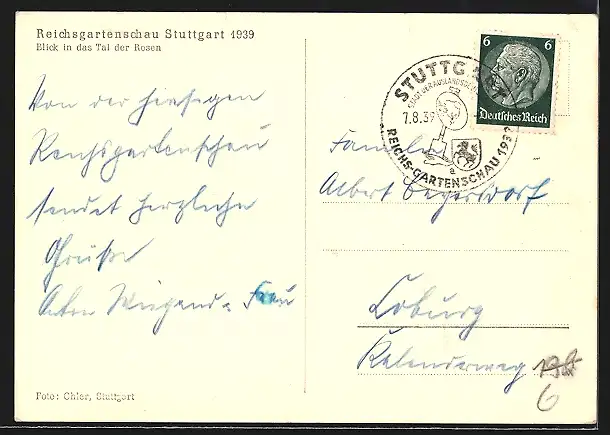 Reichsgartenschau Stuttgart 1939
Blick in das Tal der Rosen
Von der hiesigen
Reichsgartenschau
sendet herzliche
Grüße
Anton Wiegand u. Frau
Foto: Ohler, Stuttgart
STUTTGART
STADT DER AUSLANDSDEUTSCHEN
7.8.39
a
REICHS-GARTENSCHAU 1939
6 6
Deutsches Reich
Familie
Albert Beyersdorf
Coburg
Kalenderweg
6